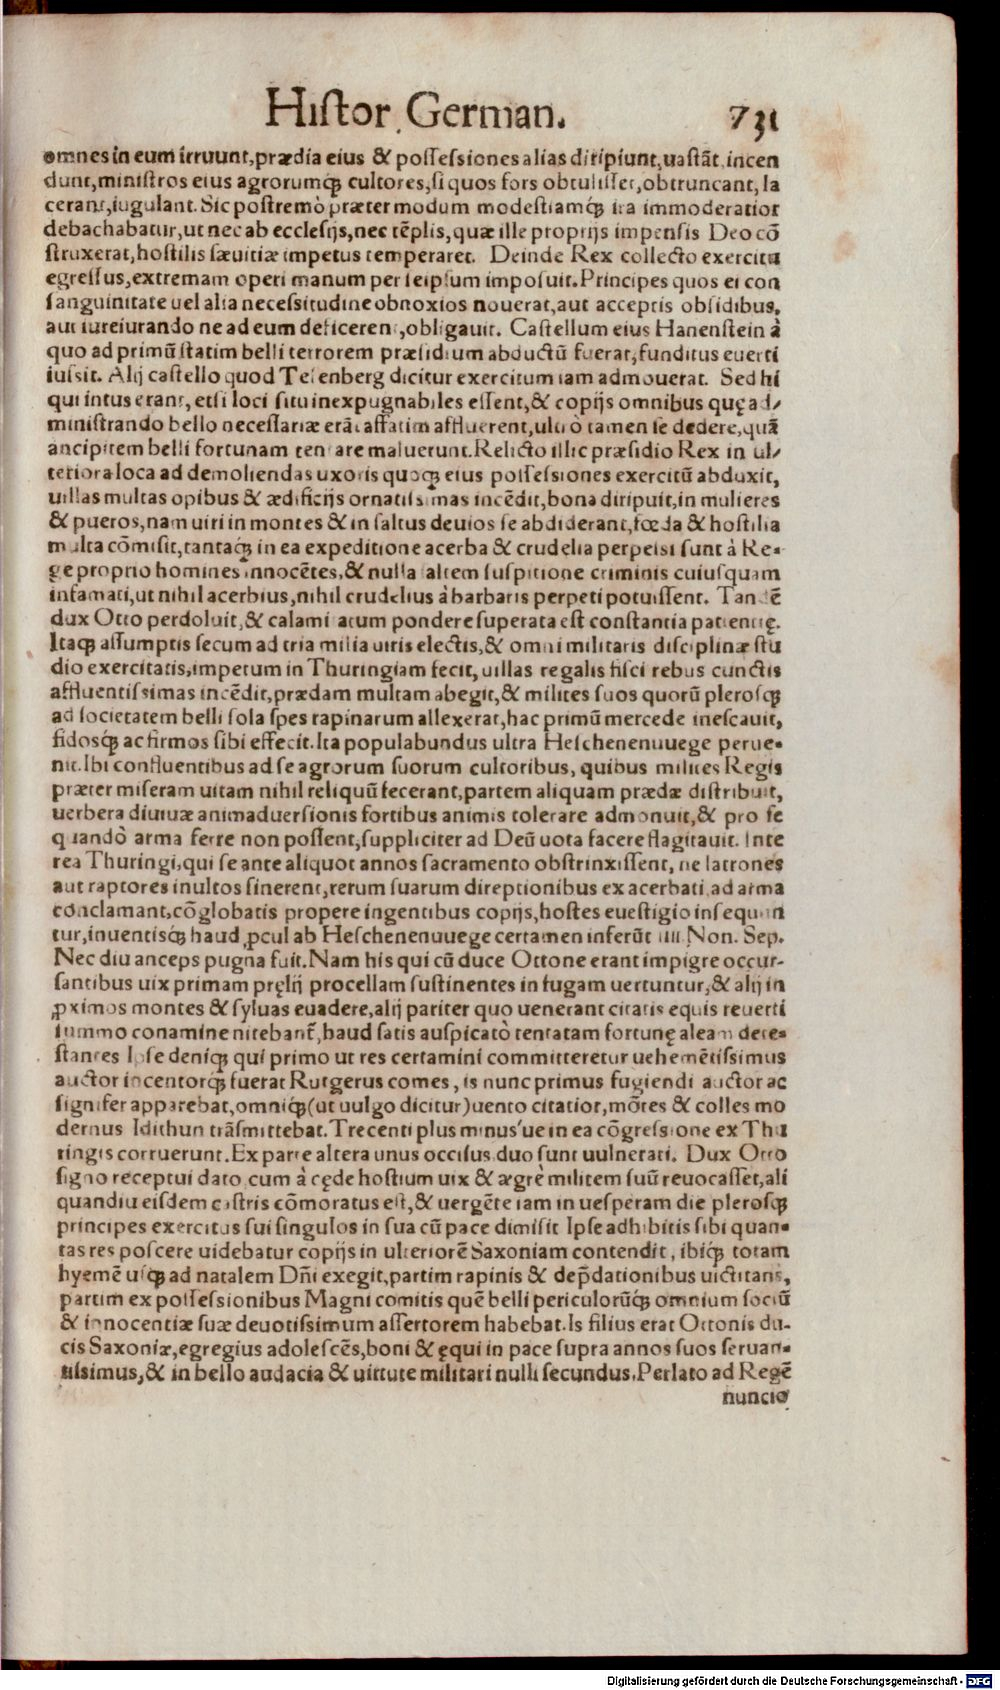 Histor. German. 731
omnes in eum irruunt, prædia eius & possessiones alias diripiunt, uastãt, incen
dunt, ministros eius agrorumq́; cultores, si quos fors obtulisset, obtruncant, la
cerant, iugulant. Sic postremò præter modum modestiamq́; ira immoderatior
debachabatur, ut nec ab ecclesijs, nec tẽplis, quæ ille proprijs impensis Deo cõ
struxerat, hostilis sæuitiæ impetus temperaret. Deinde Rex collecto exercitu
egressus, extremam operi manum per seipsum imposuit. Principes quos ei con
sanguinitate uel alia necessitudine obnoxios nouerat, aut acceptis obsidibus,
aut iureiurando ne ad eum deficerent, obligauit. Castellum eius Hanenstein à
quo ad primũ statim belli terrorem præsidium abductũ fuerat, funditus euerti
iussit. Alij castello quod Tesenberg dicitur exercitum iam admouerat. Sed hi
qui intus erant, etsi loci situ inexpugnabiles essent, & copijs omnibus quę ad⸗
ministrando bello necessariæ erãt affatim affluerent, ultrò tamen se dedere, quã
ancipitem belli fortunam tentare maluerunt. Relicto illic præsidio Rex in ul⸗
teriora loca ad demoliendas uxoris quoq; eius possessiones exercitũ abduxit,
uillas multas opibus & ædificijs ornatissimas incẽdit, bona diripuit, in mulieres
& pueros, nam uiri in montes & in saltus deuios se abdiderant, fœda & hostilia
multa cõmisit, tantaq́; in ea expeditione acerba & crudelia perpessi sunt à Re⸗
ge proprio homines innocẽtes, & nulla saltem suspitione criminis cuiusquam
infamati, ut nihil acerbius, nihil crudelius à barbaris perpeti potuissent. Tandẽ
dux Otto perdoluit, & calamitatum pondere superata est constantia patientię.
Itaq; assumptis secum ad tria milia uiris electis, & omni militaris disciplinæ stu
dio exercitatis, impetum in Thuringiam fecit, uillas regalis fisci rebus cunctis
affluentissimas incẽdit, prædam multam abegit, & milites suos quorũ plerosq;
ad societatem belli sola spes rapinarum allexerat, hac primũ mercede inescauit,
fidosq́; ac firmos sibi effecit. Ita populabundus ultra Heschenenuuege perue⸗
nit. Ibi confluentibus ad se agrorum suorum cultoribus, quibus milites Regis
præter miseram uitam nihil reliquũ fecerant, partem aliquam prædæ distribuit,
uerbera diuinæ animaduersionis fortibus animis tolerare admonuit, & pro se
quandò arma ferre non possent, suppliciter ad Deũ uota facere flagitauit. Inte
rea Thuringi, qui se ante aliquot annos sacramento obstrinxissent, ne latrones
aut raptores inultos sinerent, rerum suarum direptionibus exacerbati, ad arma
conclamant, cõglobatis propere ingentibus copijs, hostes euestigio insequun
tur, inuentisq́; haud ꝓcul ab Heschenenuuege certamen inferũt iiii. Non. Sep.
Nec diu anceps pugna fuit. Nam his qui cũ duce Ottone erant impigre occur-
santibus uix primam pręlij procellam sustinentes in fugam uertuntur, & alij in
ꝓximos montes & syluas euadere, alij pariter quo uenerant citatis equis reuerti
summo conamine nitebant̃, haud satis auspicatò tentatam fortunę aleam dete⸗
stantes Ipse deniq; qui primo ut res certamini committeretur uehemẽtissimus
auctor incentorq́; fuerat Rutgerus comes, is nunc primus fugiendi auctor ac
signifer apparebat, omniq́; (ut uulgo dicitur) uento citatior, mõtes & colles mo
dernus Idithun trãsmittebat. Trecenti plus minus'ue in ea cõgressione ex Thu
ringis corruerunt. Ex parte altera unus occisus, duo sunt uulnerati. Dux Otto
signo receptui dato cum à cęde hostium uix & ægrè militem suũ reuocasset, ali
quandiu eisdem castris cõmoratus est, & uergẽte iam in uesperam die plerosq;
principes exercitus sui singulos in sua cũ pace dimisit Ipse adhibitis sibi quan⸗
tas res poscere uidebatur copijs in ulteriorẽ Saxoniam contendit, ibiq́; totam
hyemẽ usq; ad natalem Dñi exegit, partim rapinis & dep̃dationibus uictitans,
partim ex possessionibus Magni comitis quẽ belli periculorũq́; omnium sociũ
& innocentiæ suæ deuotissimum assertorem habebat. Is filius erat Ottonis du-
cis Saxoniæ, egregius adolescẽs, boni & ęqui in pace supra annos suos seruan⸗
tissimus, & in bello audacia & uirtute militari nulli secundus. Perlato ad Regẽ
nuncio
Digitalisierung gefördert durch die Deutsche Forschungsgemeinschaft - DFG